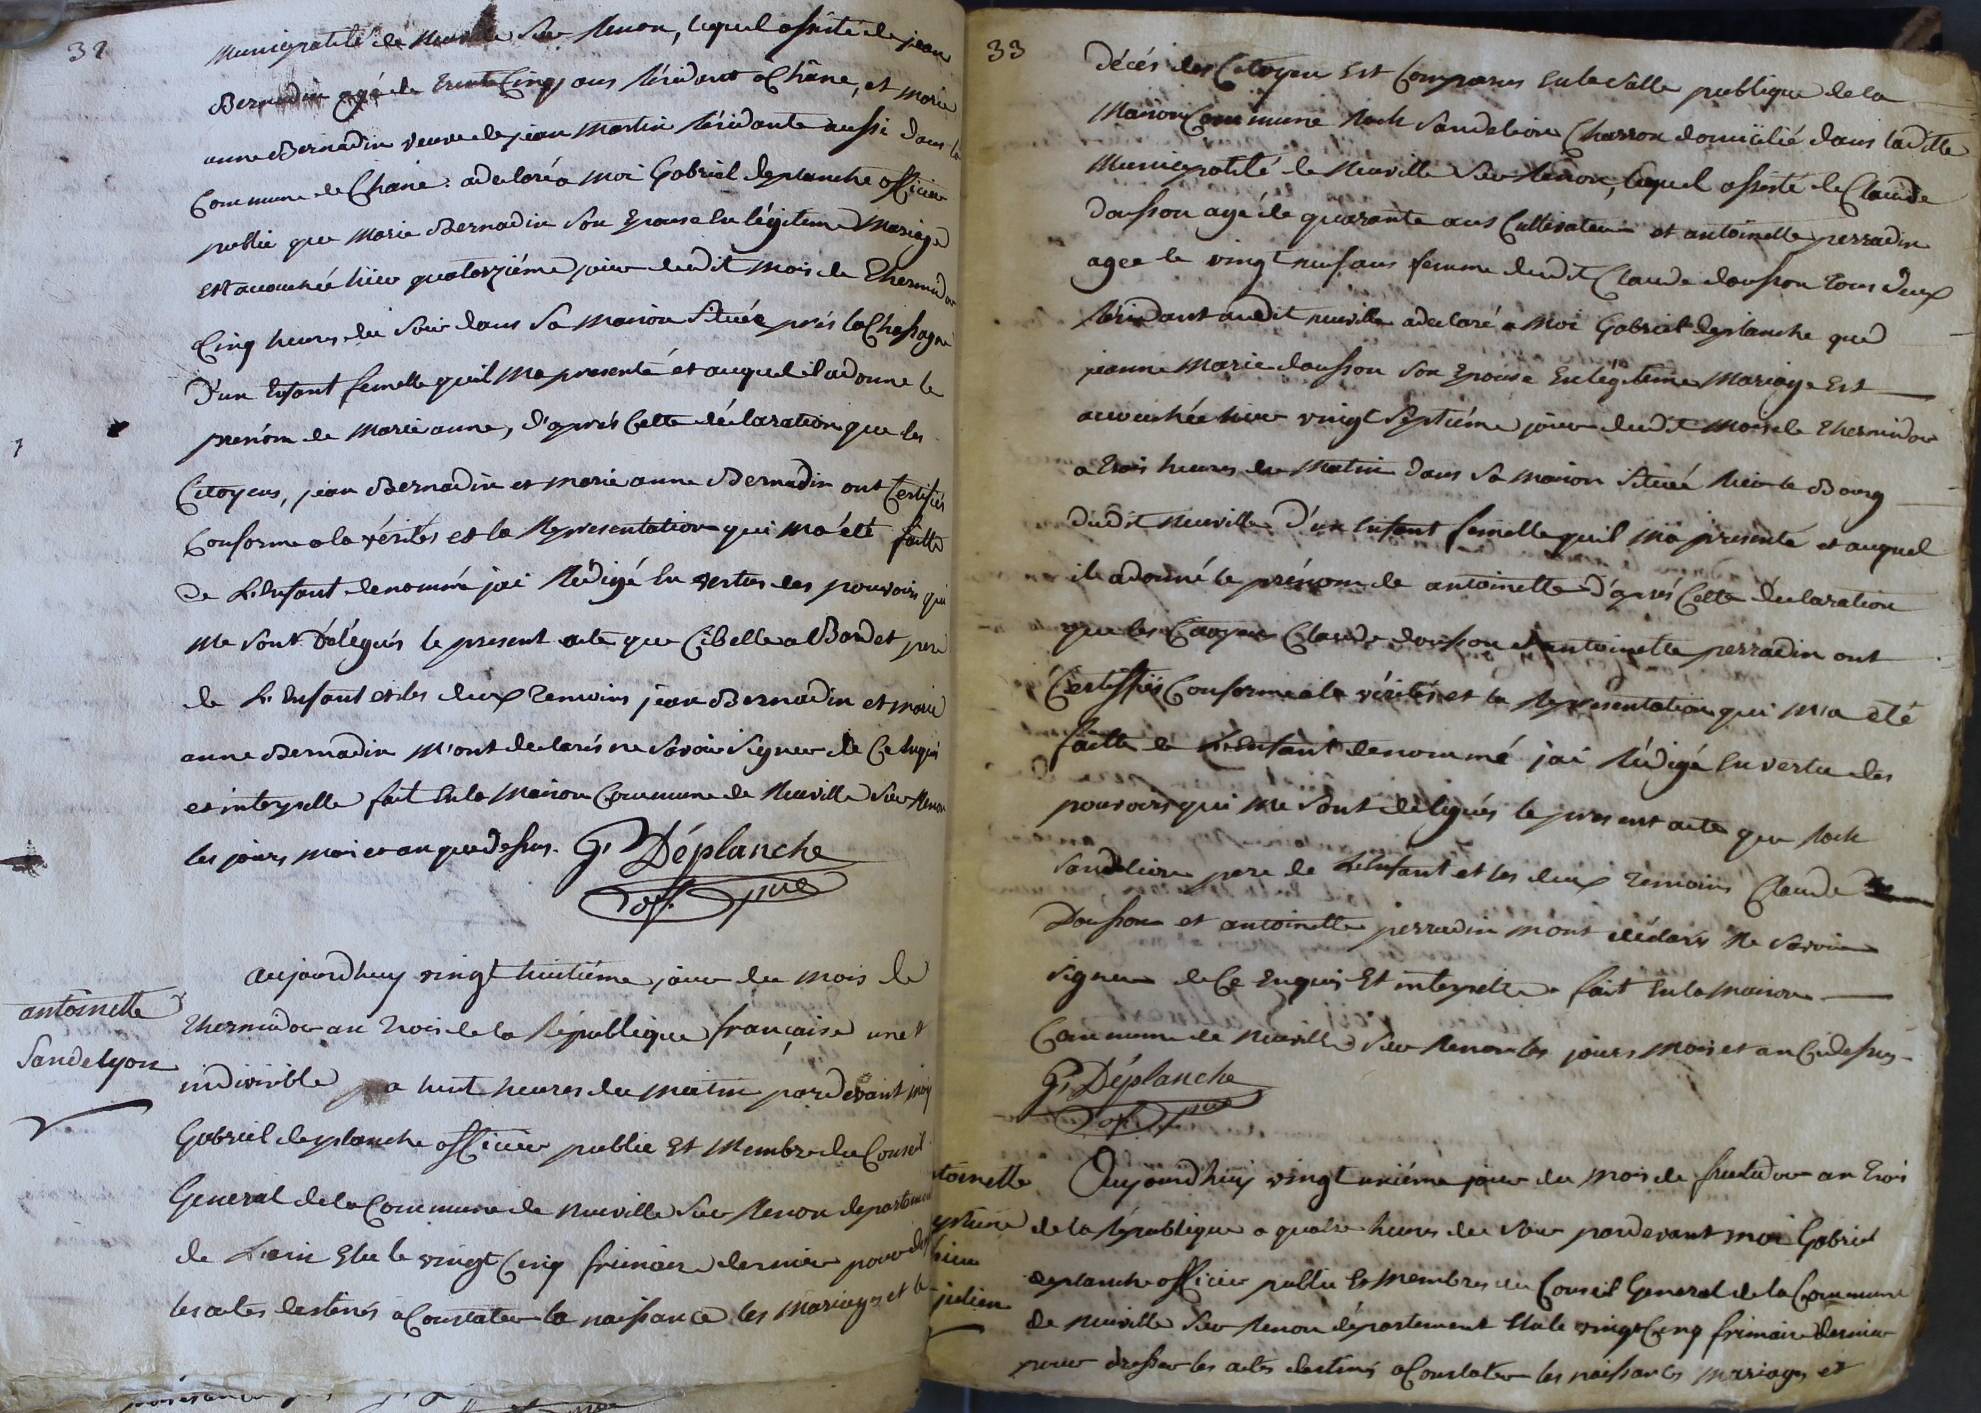 32
Municipalité de Neuville Sur Renon, lequel assisté de jean
Bernadin agé de trente Cinq ans Résidant a Châne, et marie
anne Bernadin veuve de jean Martin Résidante aussi dans la
Commune de Chane. a declaré a Moi Gabriel deplanche officier
public que Marie Bernadin Son Epouse En légitime Mariage
Est accouchée hier quatorziéme jour dudit mois de Thermidor
Cinq heures du Soir dans Sa Maison Située prés la Chassagne
D'un Enfant femelle qu'il Ma presenté et auquel il a donné le
prenóm de Marie anne, d'aprés Cette déclaration que les
Citoyens, jean Bernadin et marie anne Bernadin ont Certifiés
Conforme a la vérités et la Representation qui Ma été faitte
De L'Enfant denommé jai Rédigé En vertus des pouvoirs qui
Me Sont Délégués le present acte que Cibelle a Bordet pere
de L'Enfant et les deux Temoins jean Bernadin et marie
anne Bernadin M'ont declarés ne Savoir Signer de Ce Enquis
et interpellé fait En la Maison Commune de Neuville Sur Renon
les jours mois et an que dessus. G. Déplanche
off. pue
antoinette
Sandelyon
aujourdhuy vingt huitiéme jour du Mois de
Thermidor an Trois de la République française une et
indivisible a huit heures du Matin pardevant moy
Gabriel deplanche officier public Et Membre du Conseil
General de la Commune de Neuville Sur Renon departement
de L'ain Elu le vingt Cinq frimaire dernier pour dresser
les actes destinés a Constater la naissance les Mariages et le
33
Décés des Citoyens Est Comparus En la Salle publique de la
Maison Commune Roch Sandelion Charron domicilié dans ladite
Municipalité de Neuville Sur Renon, lequel assisté de Claude
Dousson agé de quarante ans Cultivateur et antoinette perradin
agee de vingt neuf ans femme dudit Claude dousson Tous deux
Résidant audit neuville a declaré a Moi Gabriel deplanche que
jeanne Marie dousson Son Epouse En légitime Mariage Est
accouchée hier vingt Septiéme jour dudit Mois de Thermidor
a Trois heures du Matin dans Sa maison Située Rier le Bourg
Dudit Neuville D'un Enfant femelle qu'il ma presenté et auquel
il a donné le prénom de antoinette D'aprés Cette déclaration
que les Citoyens Claude dousson et antoinette perradin ont
Certiffiés Conforme a la vérités et la Representation qui M'a été
faitte de L'Enfant denommé jai Rédigé En vertu des
pouvoirs qui Me Sont délégués le present acte que Roch
Sandelion pere de L'Enfant et les deux Temoins Claude
Dousson et antoinette perradin mont déclarés Ne Savoir
Signer de Ce Enquis Et interpellé fait En la Maison
Commune de Neuville Sur Renon les jours Mois et an Cidessus
G. Déplanche
off. pue
toinette
hieu
julien
Aujourd'huy vingt uniéme jour du Mois de fructidor an Trois
de la République a quatre heures du Soir pardevant moi Gabriel
deplanche officier public Et Membres du Conseil General de la Commune
de Neuville Sur Renon département Elu le vingt Cinq frimaire dernier
pour dresser les actes destinés a Constater les naissances Mariages et